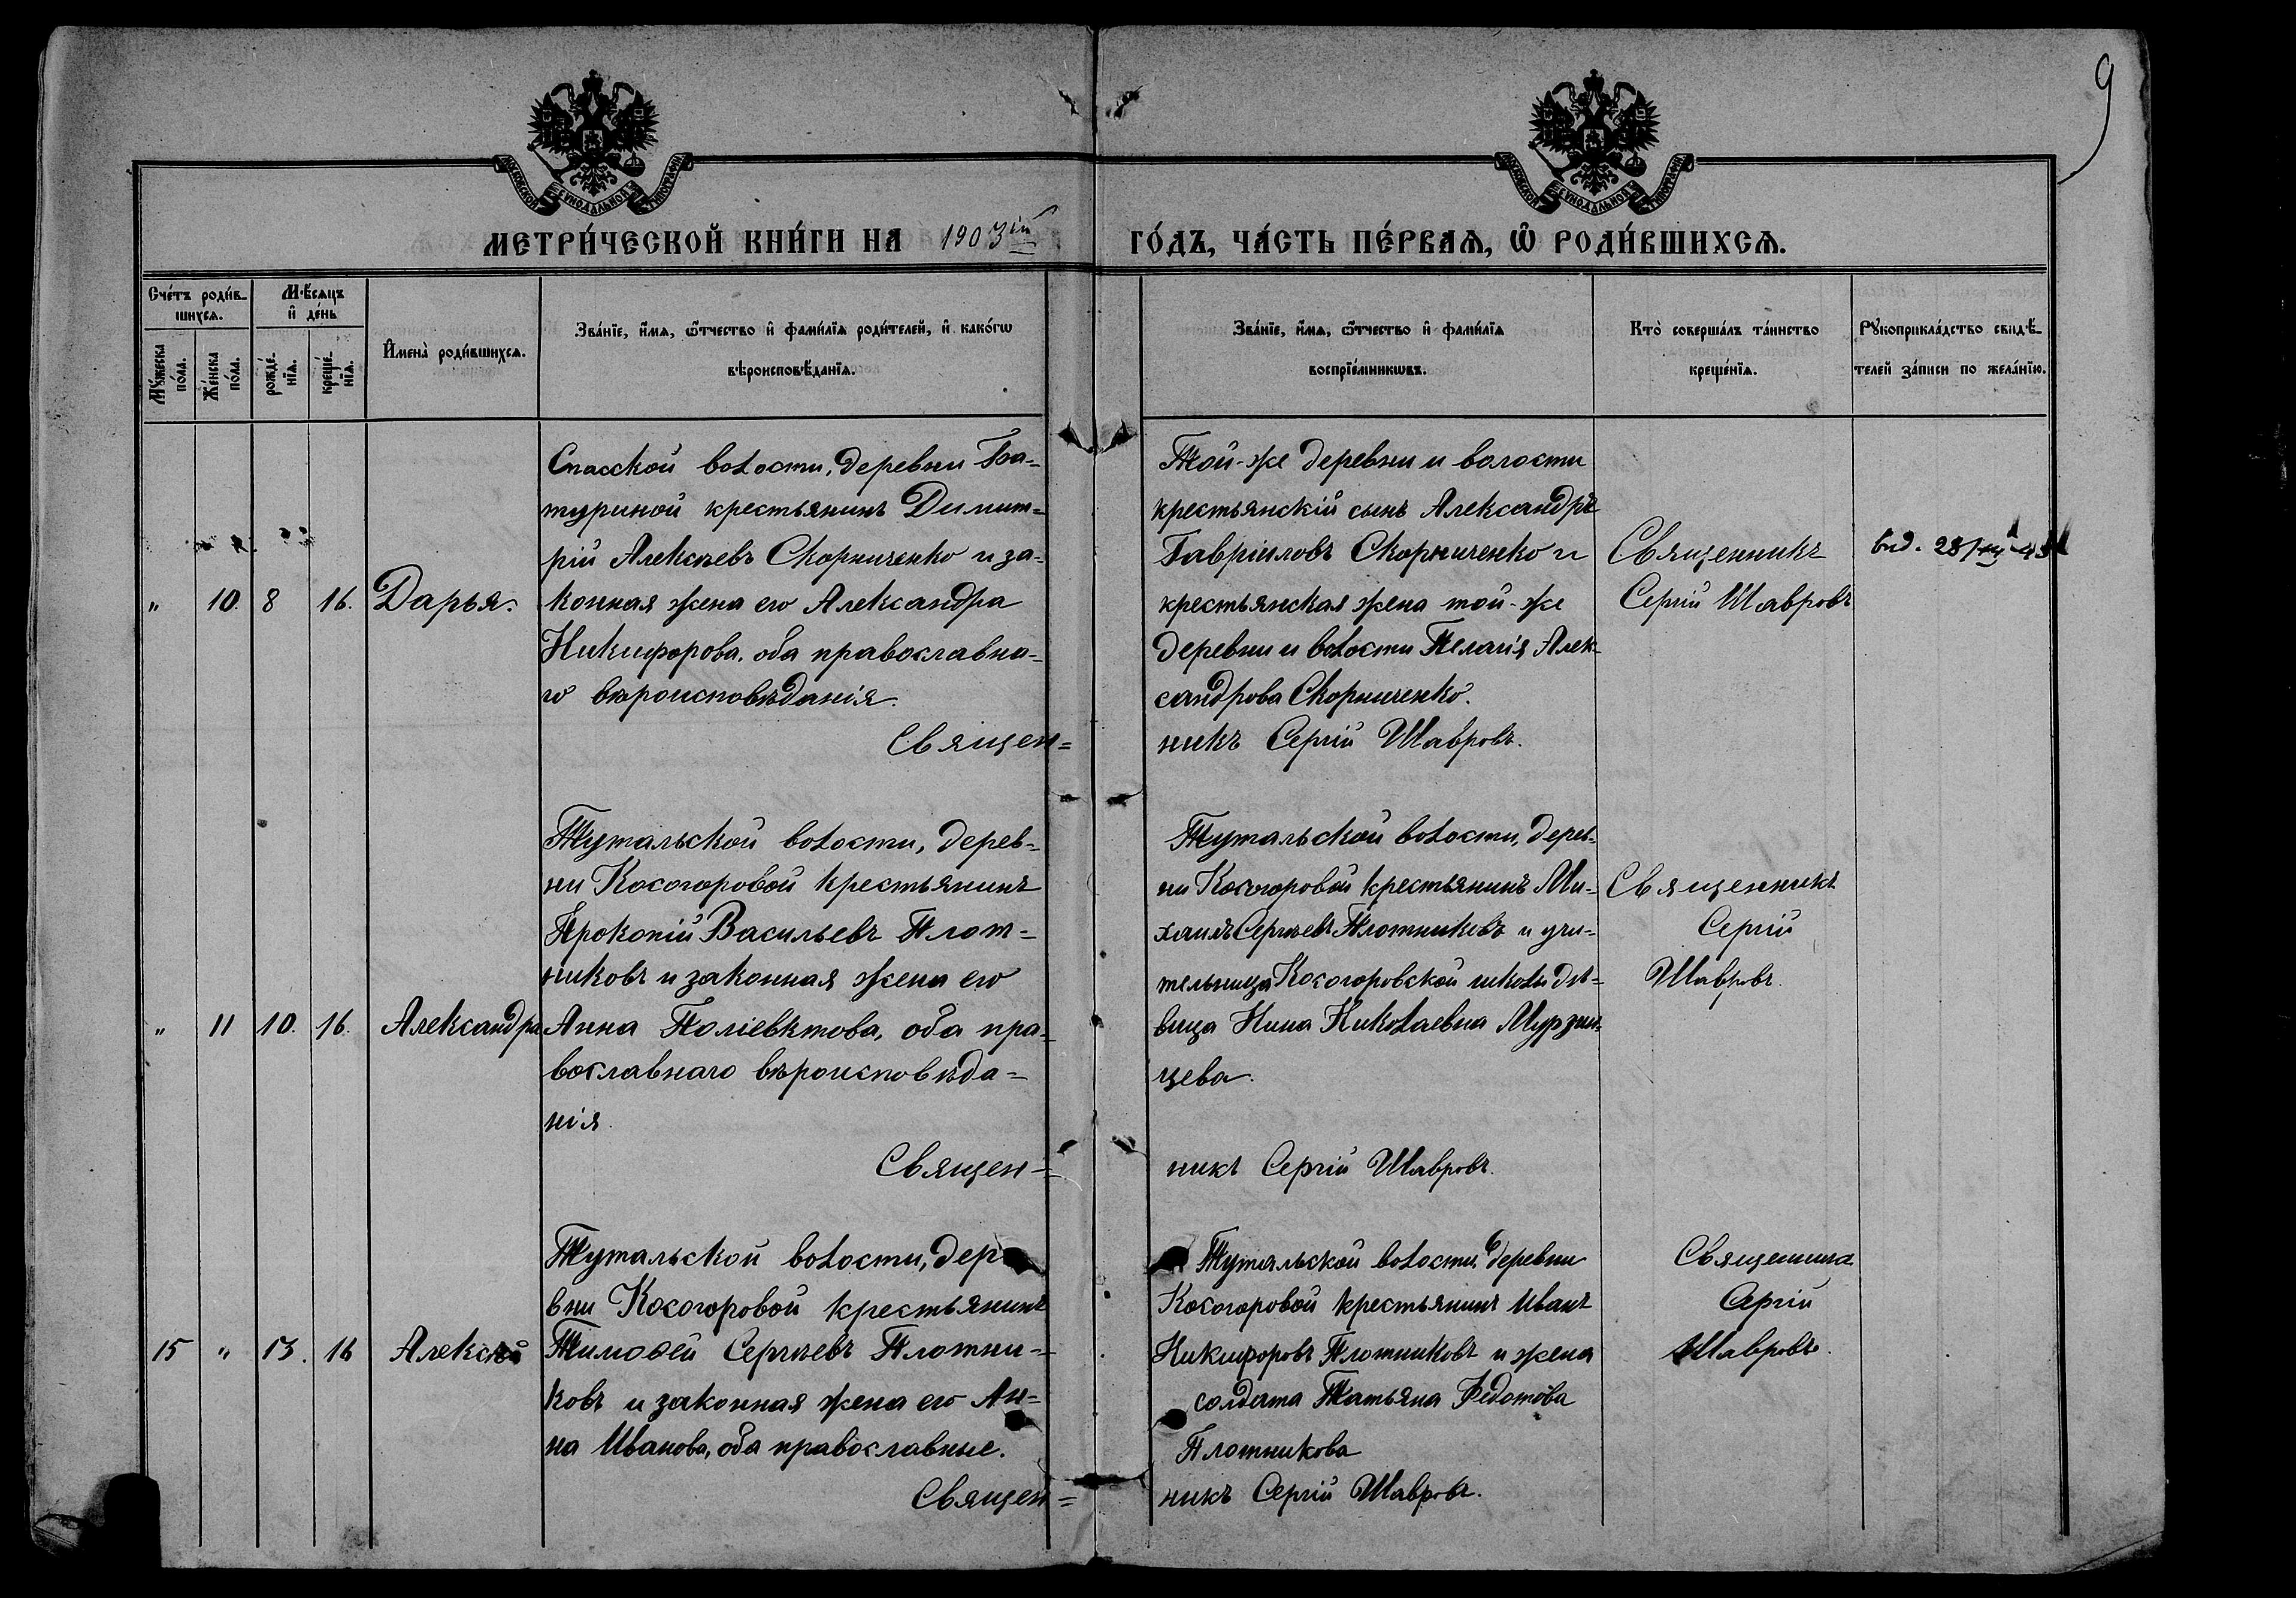 9
МОСКОВСКОЙ СѴНОДАЛЬНОЙ ТИПОГРАФІИ
МОСКОВСКОЙ СѴНОДАЛЬНОЙ ТИПОГРАФІИ
МЕТРИ́ЧЕСКОЙ КНИ́ГИ НА 1903ій ГО́ДЪ, ЧА́СТЬ ПЕ́РВАѦ, Ѡ҆ РОДИ́ВШИХСѦ.
Сче́тъ роди́в-
шихсѧ.
Мꙋ́жеска по́ла.
Же́нска по́ла.
М'ѣсѧцъ
и҆ де́нь
рожде́-
нїѧ.
креще́-
нїѧ.
И҆мена̀ роди́вшихсѧ.
Зва́нїе, и҆́мѧ, ѻ҆́тчество и҆ фами́лїѧ роди́телей, и҆ како́гѡ
вѣроисповѣ́данїѧ.
Зва́нїе, и҆́мѧ, ѻ҆́тчество и҆ фами́лїѧ
воспрїе́мникѡвъ.
Кто̀ соверша́лъ та́инство
креще́нїѧ.
Рꙋкоприкла́дство свидѣ́-
телей за́писи по жела́нїю.
" 10. 8 16. Дарья.
Спасской волости, деревни Ба-
туриной крестьянинъ Димит-
рій Алексѣевъ Скорниченко и за-
конная жена его Александра
Никифорова, оба православна-
го вѣроисповѣданія.
Священ=
Той-же деревни и волости
крестьянскій сынъ Александръ
Гавріиловъ Скорниченко и
крестьянская жена той-же
деревни и волости Пелагія Алек-
сандрова Скорниченко.
никъ Сергій Шавровъ.
Священникъ
Сергій Шавровъ
выд. 28/XII
" 11 10. 16. Александра
Тутальской волости, дерев-
ни Косогоровой крестьянинъ
Прокопій Васильевъ Плот-
никовъ и законная жена его
Анна Поліевктова, оба пра-
вославнаго вѣроисповѣда-
нія.
Священ=
Тутальской волости, дерев-
ни Косогоровой крестьянинъ Ми-
хаилъ Сергѣевъ Плотниковъ и учи-
тельница Косогоровской школы дѣ-
вица Нина Николаевна Мурзин-
цева.
никъ Сергій Шавровъ.
Священникъ
Сергій
Шавровъ.
15 " 13. 16 Алексѣй
Тутальской волости, дер
вни Косогоровой крестьянинъ
Тимоѳей Сергѣевъ Плотни-
ковъ и законная жена его Ан-
на Иванова, оба православные.
Священ=
Тутальской волости, деревни
Косогоровой крестьянинъ Иванъ
Никифоровъ Плотниковъ и жена
солдата Татьяна Федотова
Плотникова
никъ Сергій Шавровъ.
Священника
Сергій
Шавровъ.